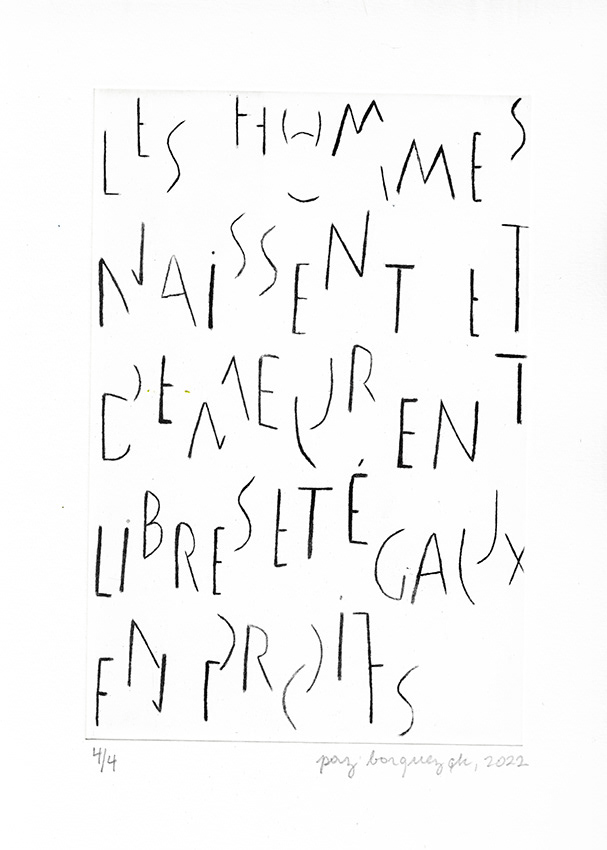 LES HOMMES
NAiSSENT ET
DEMEURENT
LiBRES ET ÉGAUX
EN DROiTS
4/4
paz borquez, 2022